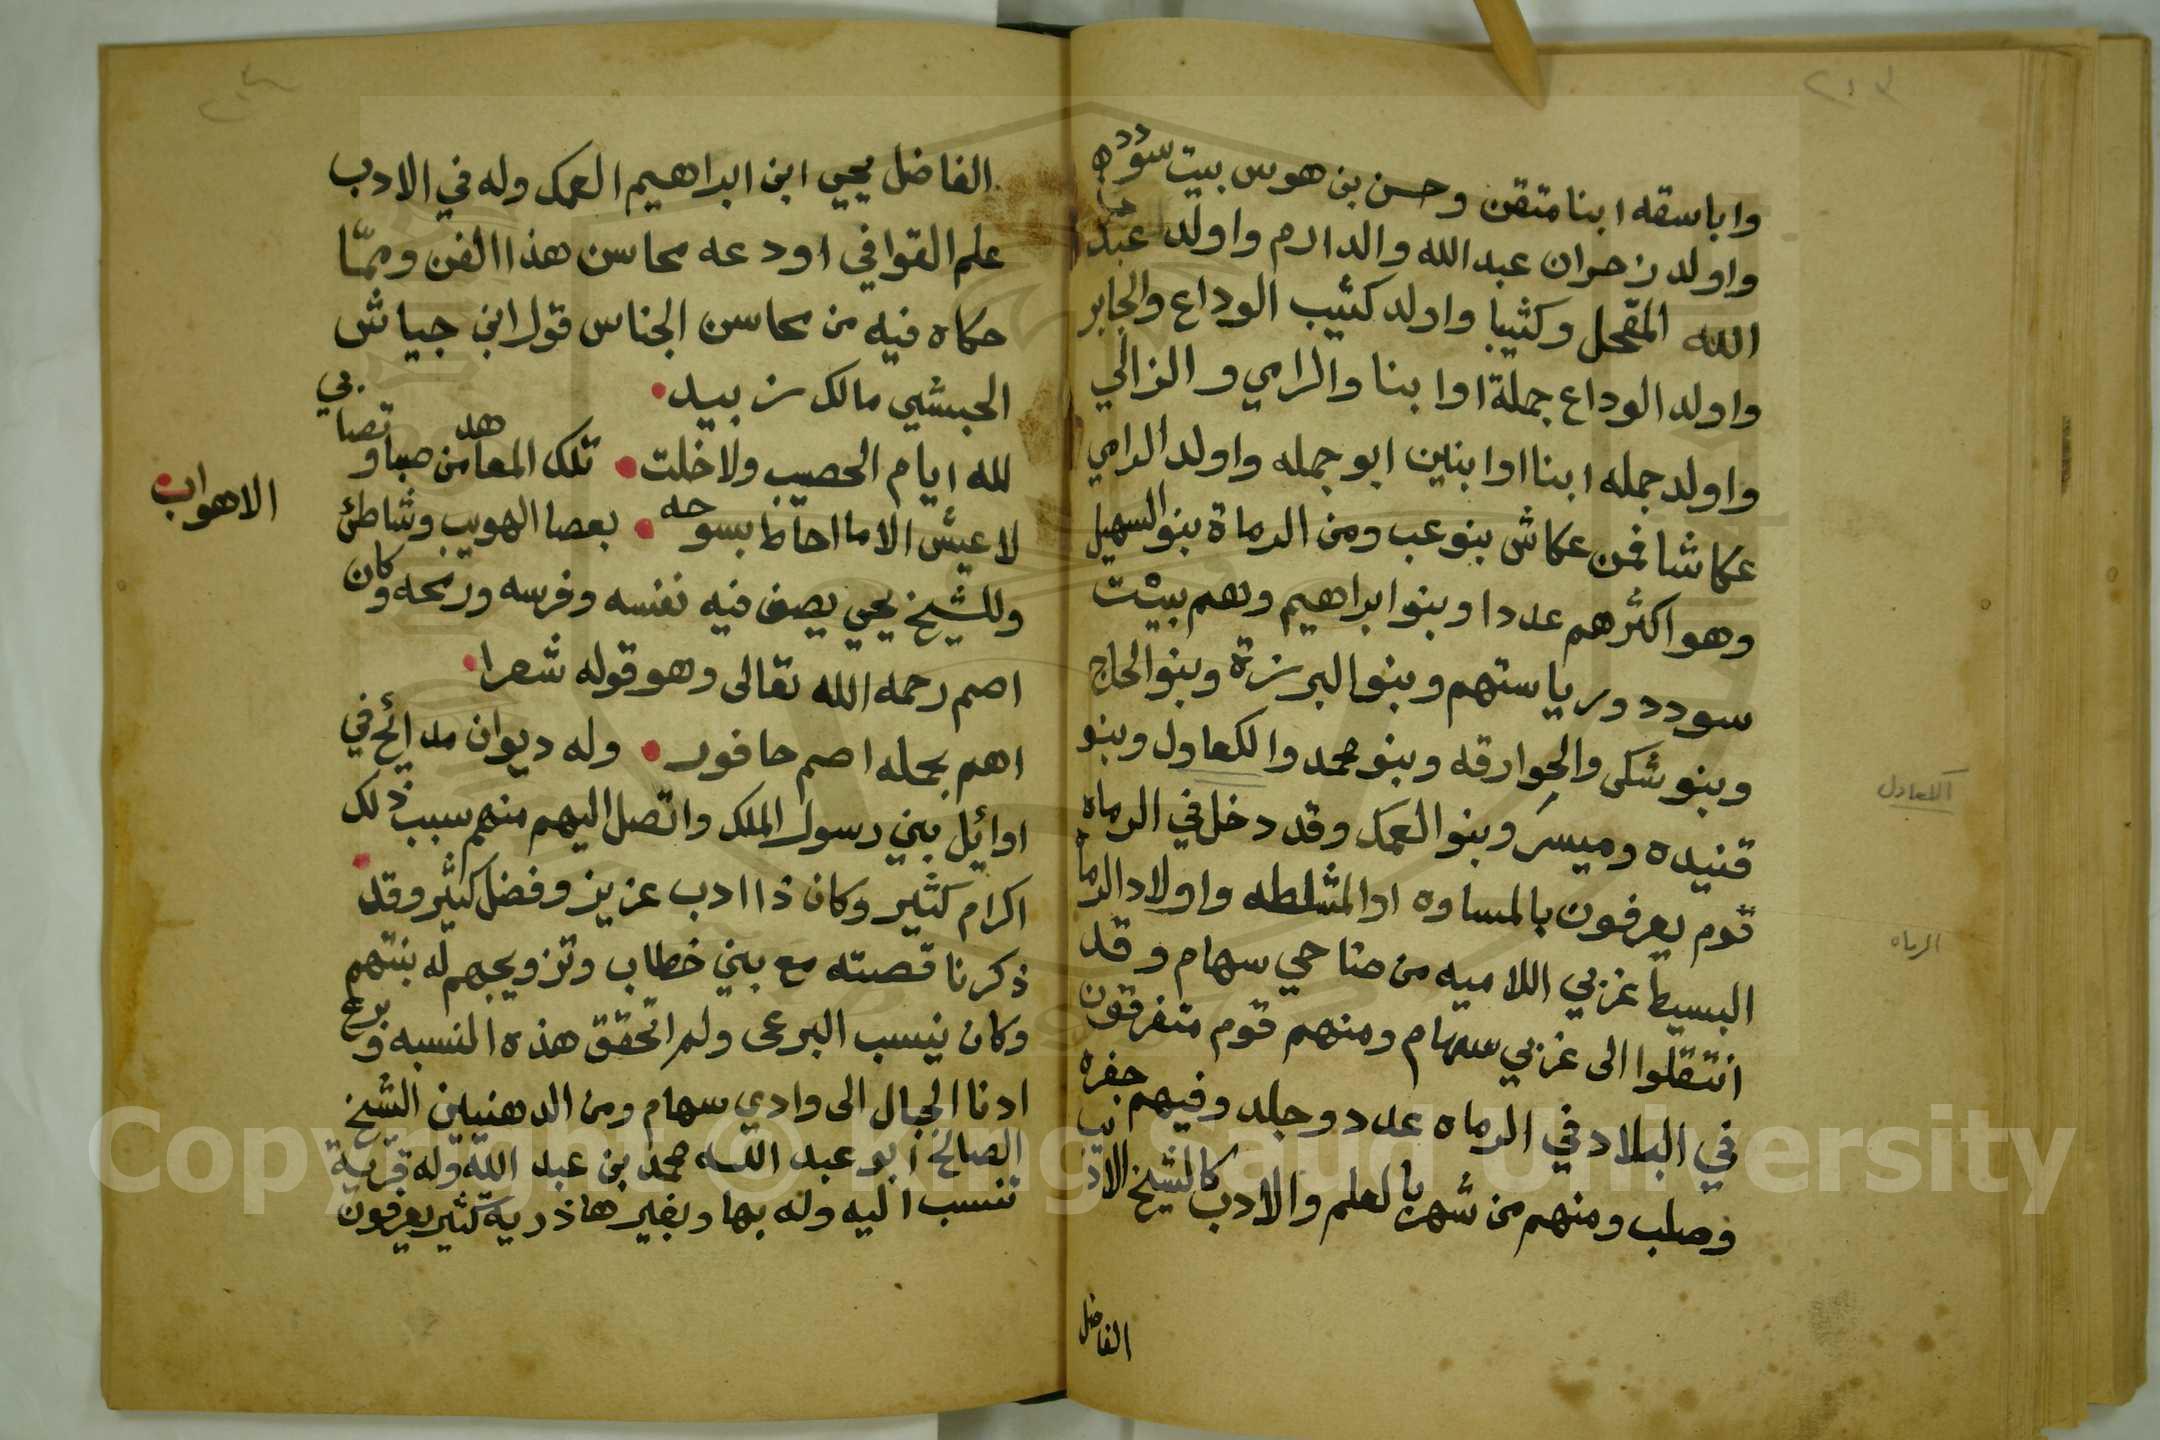 ٢٠٣
واباسقه ابنا متقن وحسن بن هوس بيت سودده
واولد زحران عبد الله والدارم واولد عبد
الله المقحل وكثيبا واولد كثيب الوداع والجابر
واولد الوداع جملة اوابنا والرامي والزالي
واولد جمله ابنا اوابنين ابو جمله واولد الرامي
عكاشا فمن عكاش بنو عب ومن الرماة بنو السهيل
وهو اكثرهم عددا وبنو ابراهيم وهم بيت
سودد ورياستهم وبنو البرزة وبنو الحاج
وبنو شكى والجوارقه وبنو محمد والكعادل وبنو
قنيده وميسر وبنو العمك وقد دخل في الرماه
قوم يعرفون بالمساوه او المشلطه واولاد الرما
البسيط غربي اللاميه من ضاحي سهام وقد
انتقلوا الى غربي سهام ومنهم قوم متفرقون
في البلاد في الرماه عدد وجلد وفيهم جفره
وصلب ومنهم من شهر بالعلم والادب كالشيخ الاديب
الفاضل
الكعادل
الرماه
٢٠٤
الفاضل يحيي ابن ابراهيم العمك وله في الادب
علم القوافي اودعه محاسن هذا الفن ومما
حكاه فيه من محاسن الجناس قول ابن جياش
الحبشي مالك زبيد
لله ايام الحصيب ولا خلت تلك المعاهد من صبا وتصابي
لا عيش الا ما احاط بسوحه بعصا الهويب وشاطئ
الاهواب
وللشيخ يحيي يصف فيه نفسه وفرسه ورمحه وكان
اصم رحمه الله تعالى وهو قوله شعرا
اهم بحمله اصم حافور وله ديوان مدائح في
اوائل بني رسول الملك واتصل اليهم منهم سبب ذلك
اكرام كثير وكان ذا ادب عزيز وفضل كثير وقد
ذكرنا قصته مع بيني خطاب وتزويجهم له بنتهم
وكان ينسب البرعى ولم اتحقق هذه النسبه وبرع
ادنا الجبال الى وادي سهام ومن الدهنيين الشيخ
الصالح ابو عبد الله محمد بن عبد الله وله قرية
تنسب اليه وله بها وبغيرها ذرية كثير يعرفون
Copyright © King Saud University